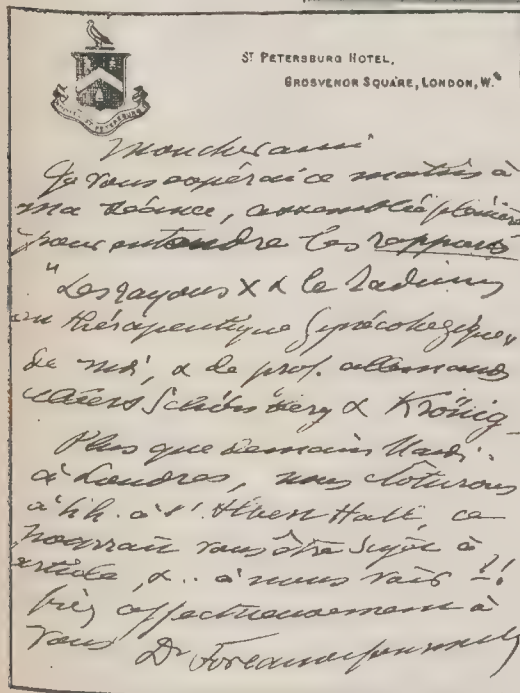 ST PETERSBURG HOTEL,
GROSVENOR SQUARE, LONDON, W.
ST PETERSBURG
Mon cher ami
Je vous espérai ce matin à
ma séance, assemblée plénière
pour entendre les rapports
"Les rayons X & le Radium
en thérapeutique gynécologique"
de moi, & de prof. allemands
Schönberg & Krönig
Plus que demains Mardi
à Londres, nous cloturons
à Albert Hall, ce
pourrait vous être sujet à
article, &.. à nous voir ?!
très affectueusement à
vous Dr